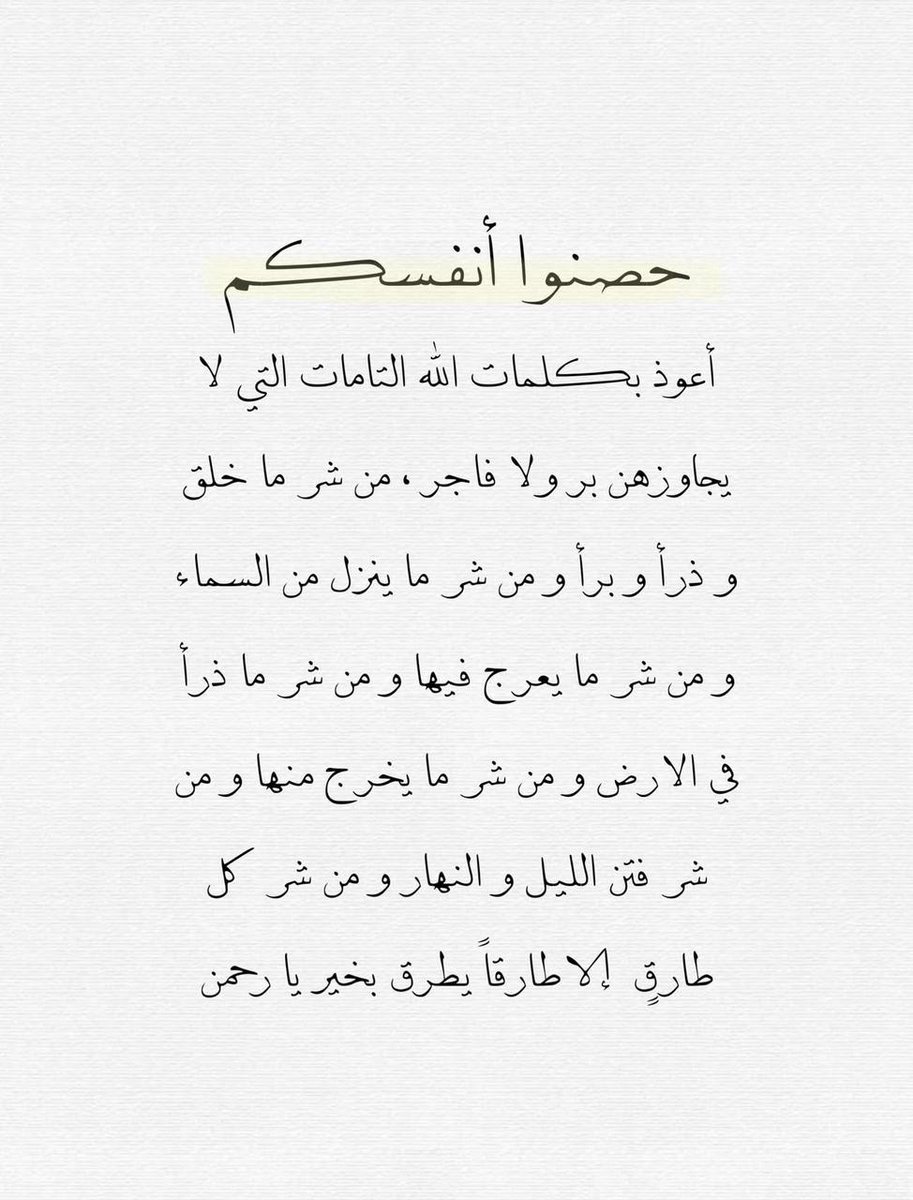 حصنوا أنفسكم
أعوذ بكلمات الله التامات التي لا
يجاوزهن بر ولا فاجر ، من شر ما خلق
و ذرأ و برأ و من شر ما ينزل من السماء
و من شر ما يعرج فيها و من شر ما ذرأ
في الارض و من شر ما يخرج منها و من
شر فتن الليل و النهار و من شر كل
طارقٍ إلا طارقاً يطرق بخير يا رحمن